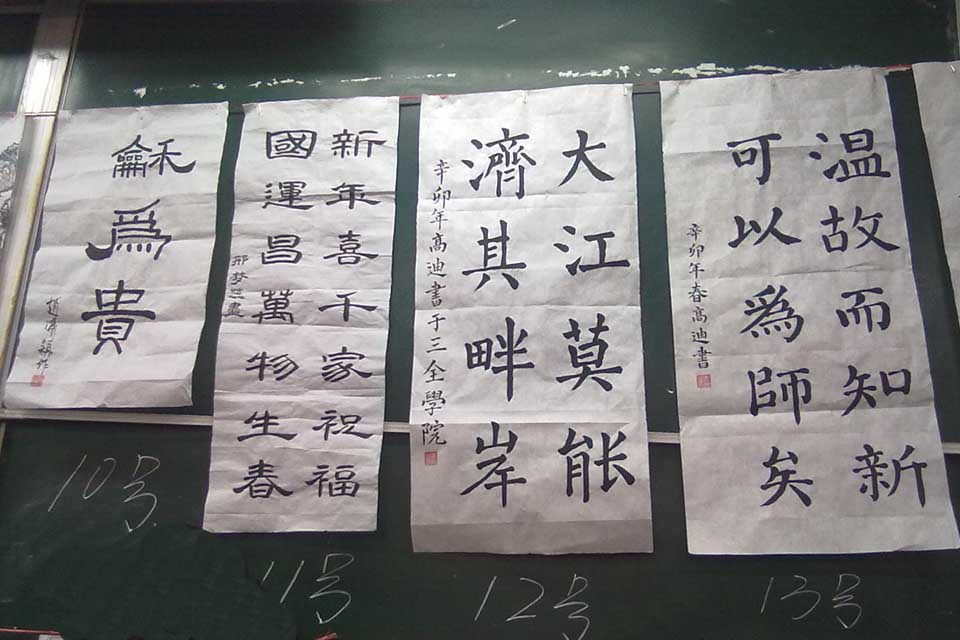 龢爲貴
10号
新年喜千家祝福
國運昌萬物生春
11号
大江莫能
濟其畔岸
辛卯年髙迪書于三全學院
12号
温故而知新
可以爲師矣
辛卯年春髙迪書
13号